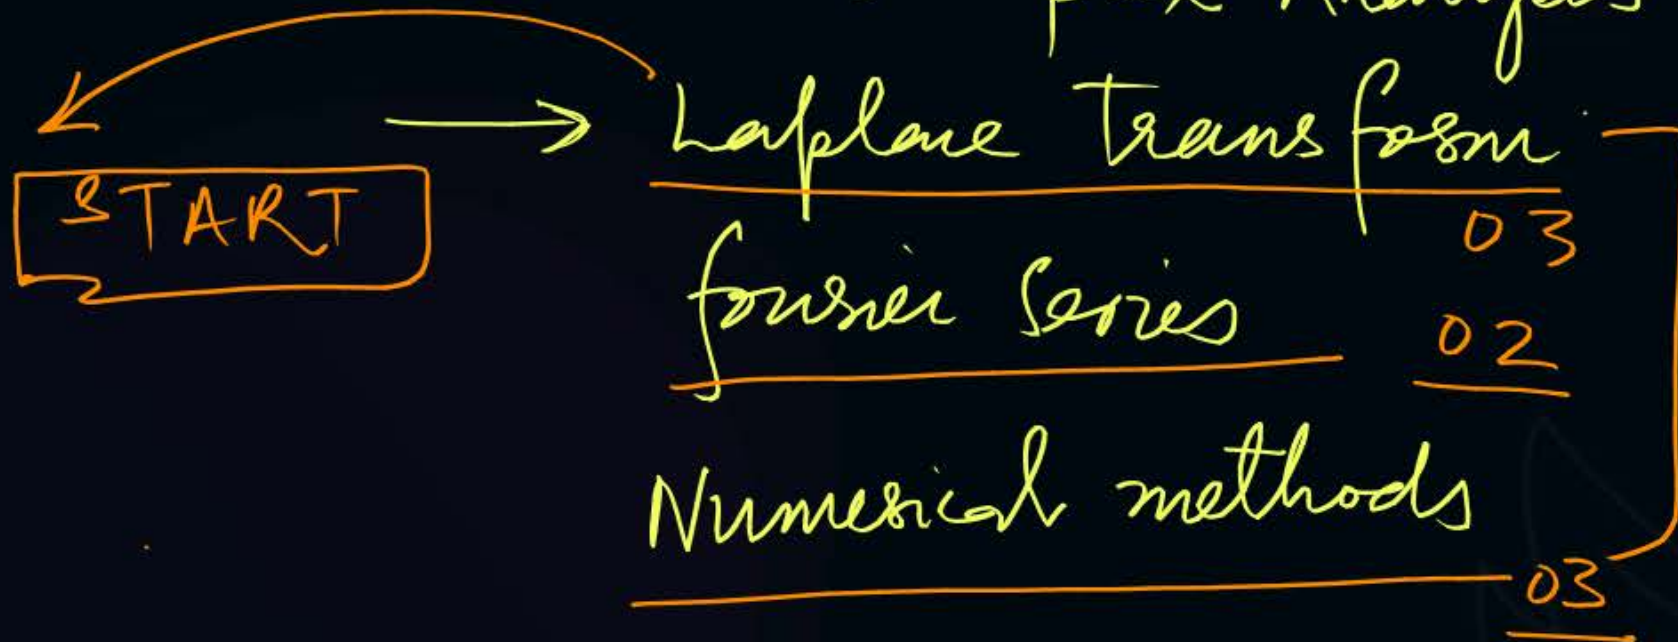 Laplace Transform
START
03
Fourier Series 02
Numerical methods
03